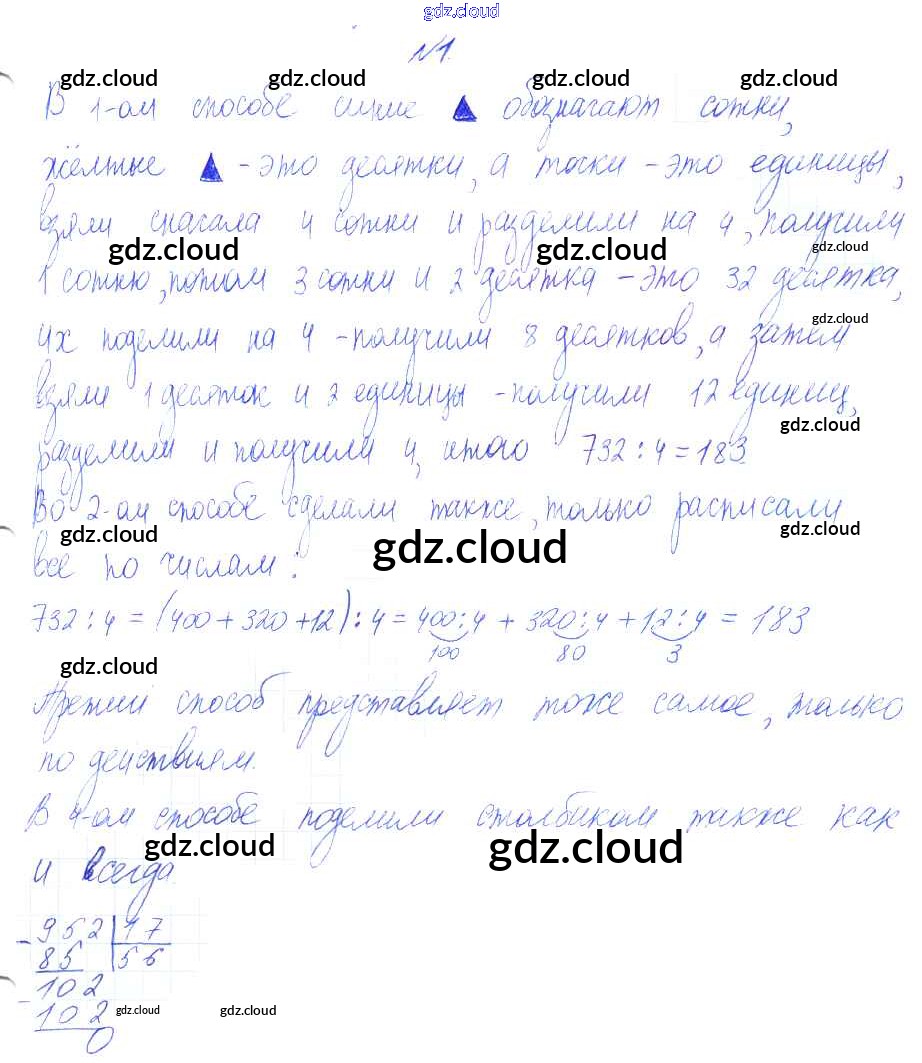 gdz.cloud
№1.
gdz.cloud gdz.cloud gdz.cloud gdz.cloud
В 1-ом способе синие ▲ обозначают сотки,
жёлтые ▲ - это десятки, а точки - это единицы,
взяли сначала 4 сотки и разделили на 4, получили
gdz.cloud gdz.cloud gdz.cloud
1 сотню, потом 3 сотки и 2 десятка - это 32 десятка,
gdz.cloud
их поделили на 4 - получили 8 десятков, а затем
взяли 1 десяток и 2 единицы - получили 12 единиц,
gdz.cloud
разделили и получили 4, итого 732 : 4 = 183
Во 2-ом способе сделали также, только расписали
gdz.cloud gdz.cloud gdz.cloud
все по числам:
732 : 4 = (400 + 320 + 12) : 4 = 400 : 4 + 320 : 4 + 12 : 4 = 183
100 80 3
gdz.cloud
Третий способ представляет тоже самое, только
по действиям.
В 4-ом способе поделили столбиком также как
gdz.cloud gdz.cloud
и всегда.
- 952 | 17
85 | 56
- 102
102 gdz.cloud gdz.cloud
0